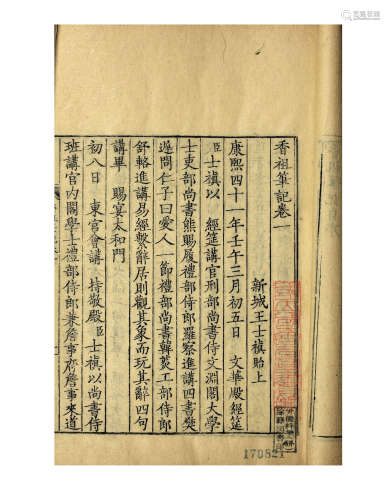 香祖筆記卷一
新城王士禛貽上
康熙四十一年壬午三月初五日 文華殿經筵
臣士禛以 經筵講官刑部尚書侍文淵閣大學
士吏部尚書熊賜履禮部侍郎羅察進講四書樊
遲問仁子曰愛人一節禮部尚書韓菼工部侍郎
舒輅進講易經繫辭居則觀其象而玩其辭四句
講畢 賜宴太和門
初八日 東宮會講 持敬殿臣士禛以尚書侍
班講官內閣學士禮部侍郎兼詹事府詹事來道
170821